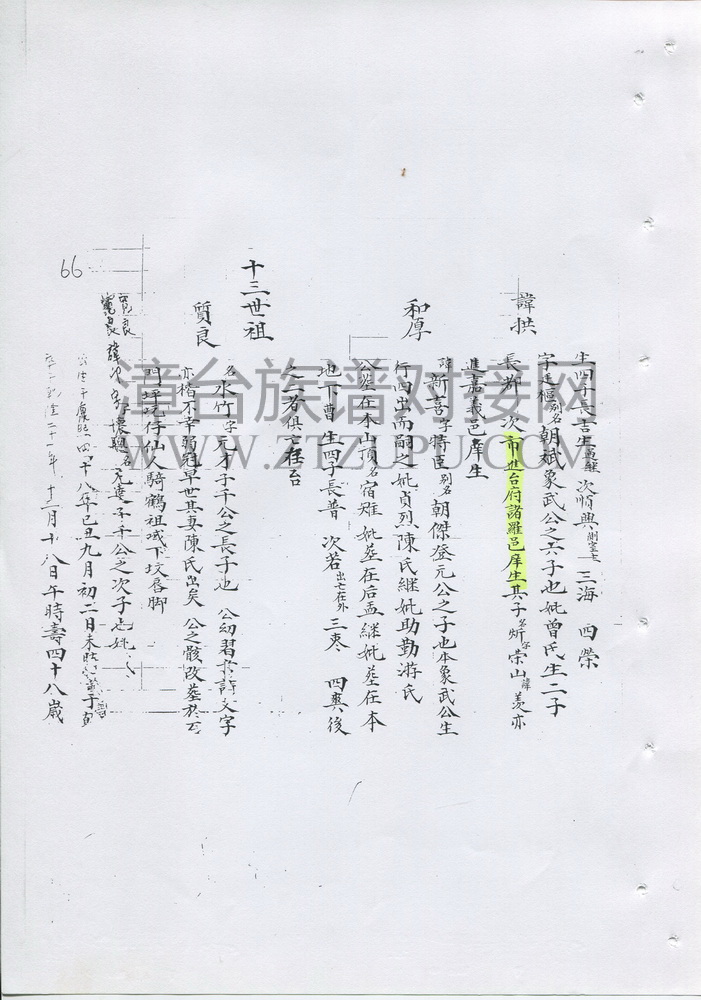 生四子長吉生 次惰興 三海 四榮
諱拱
字廷樞別名朝斌象武公之六子也妣曾氏生二子
長都 次市進台府諸羅邑庠生其子名炘字崇山諱羡亦
進嘉義邑庠生
和厚
諱斯喜字特臣別名朝傑登元公之子也本象武公生
行四出而嗣之妣貞烈陳氏継妣助勤游氏
公塟在本山頂名宿难妣塟在后孟継妣塟在本
地下曹生四子長普 次若出亡在外 三枣 四興後
之二者俱亡在台
十三世祖
質良
名水竹字元才子千公之長子也 公幼習書詩文字
亦楷不幸弱冠早世其妻陳氏出矣 公之骸改塟於
門坪湾仔仙人騎鶴祖域下坟唇脚
寬良
名元達子千公之次子也妣
康熙四十八年己丑九月初二日未時
二十二年十二月十八日午時壽四十八歲
66
漳台族谱对接网
WWW.ZTZUPU.COM